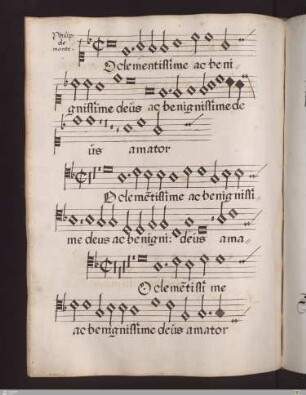 Philip
de
monte.
O clementissime ac beni
gnissime deus ac benignissime de
us amator
O clemẽtissime ac benignissi
me deus ac benigni: deus ama
O clemẽtissi me
ac benignissime deus amator